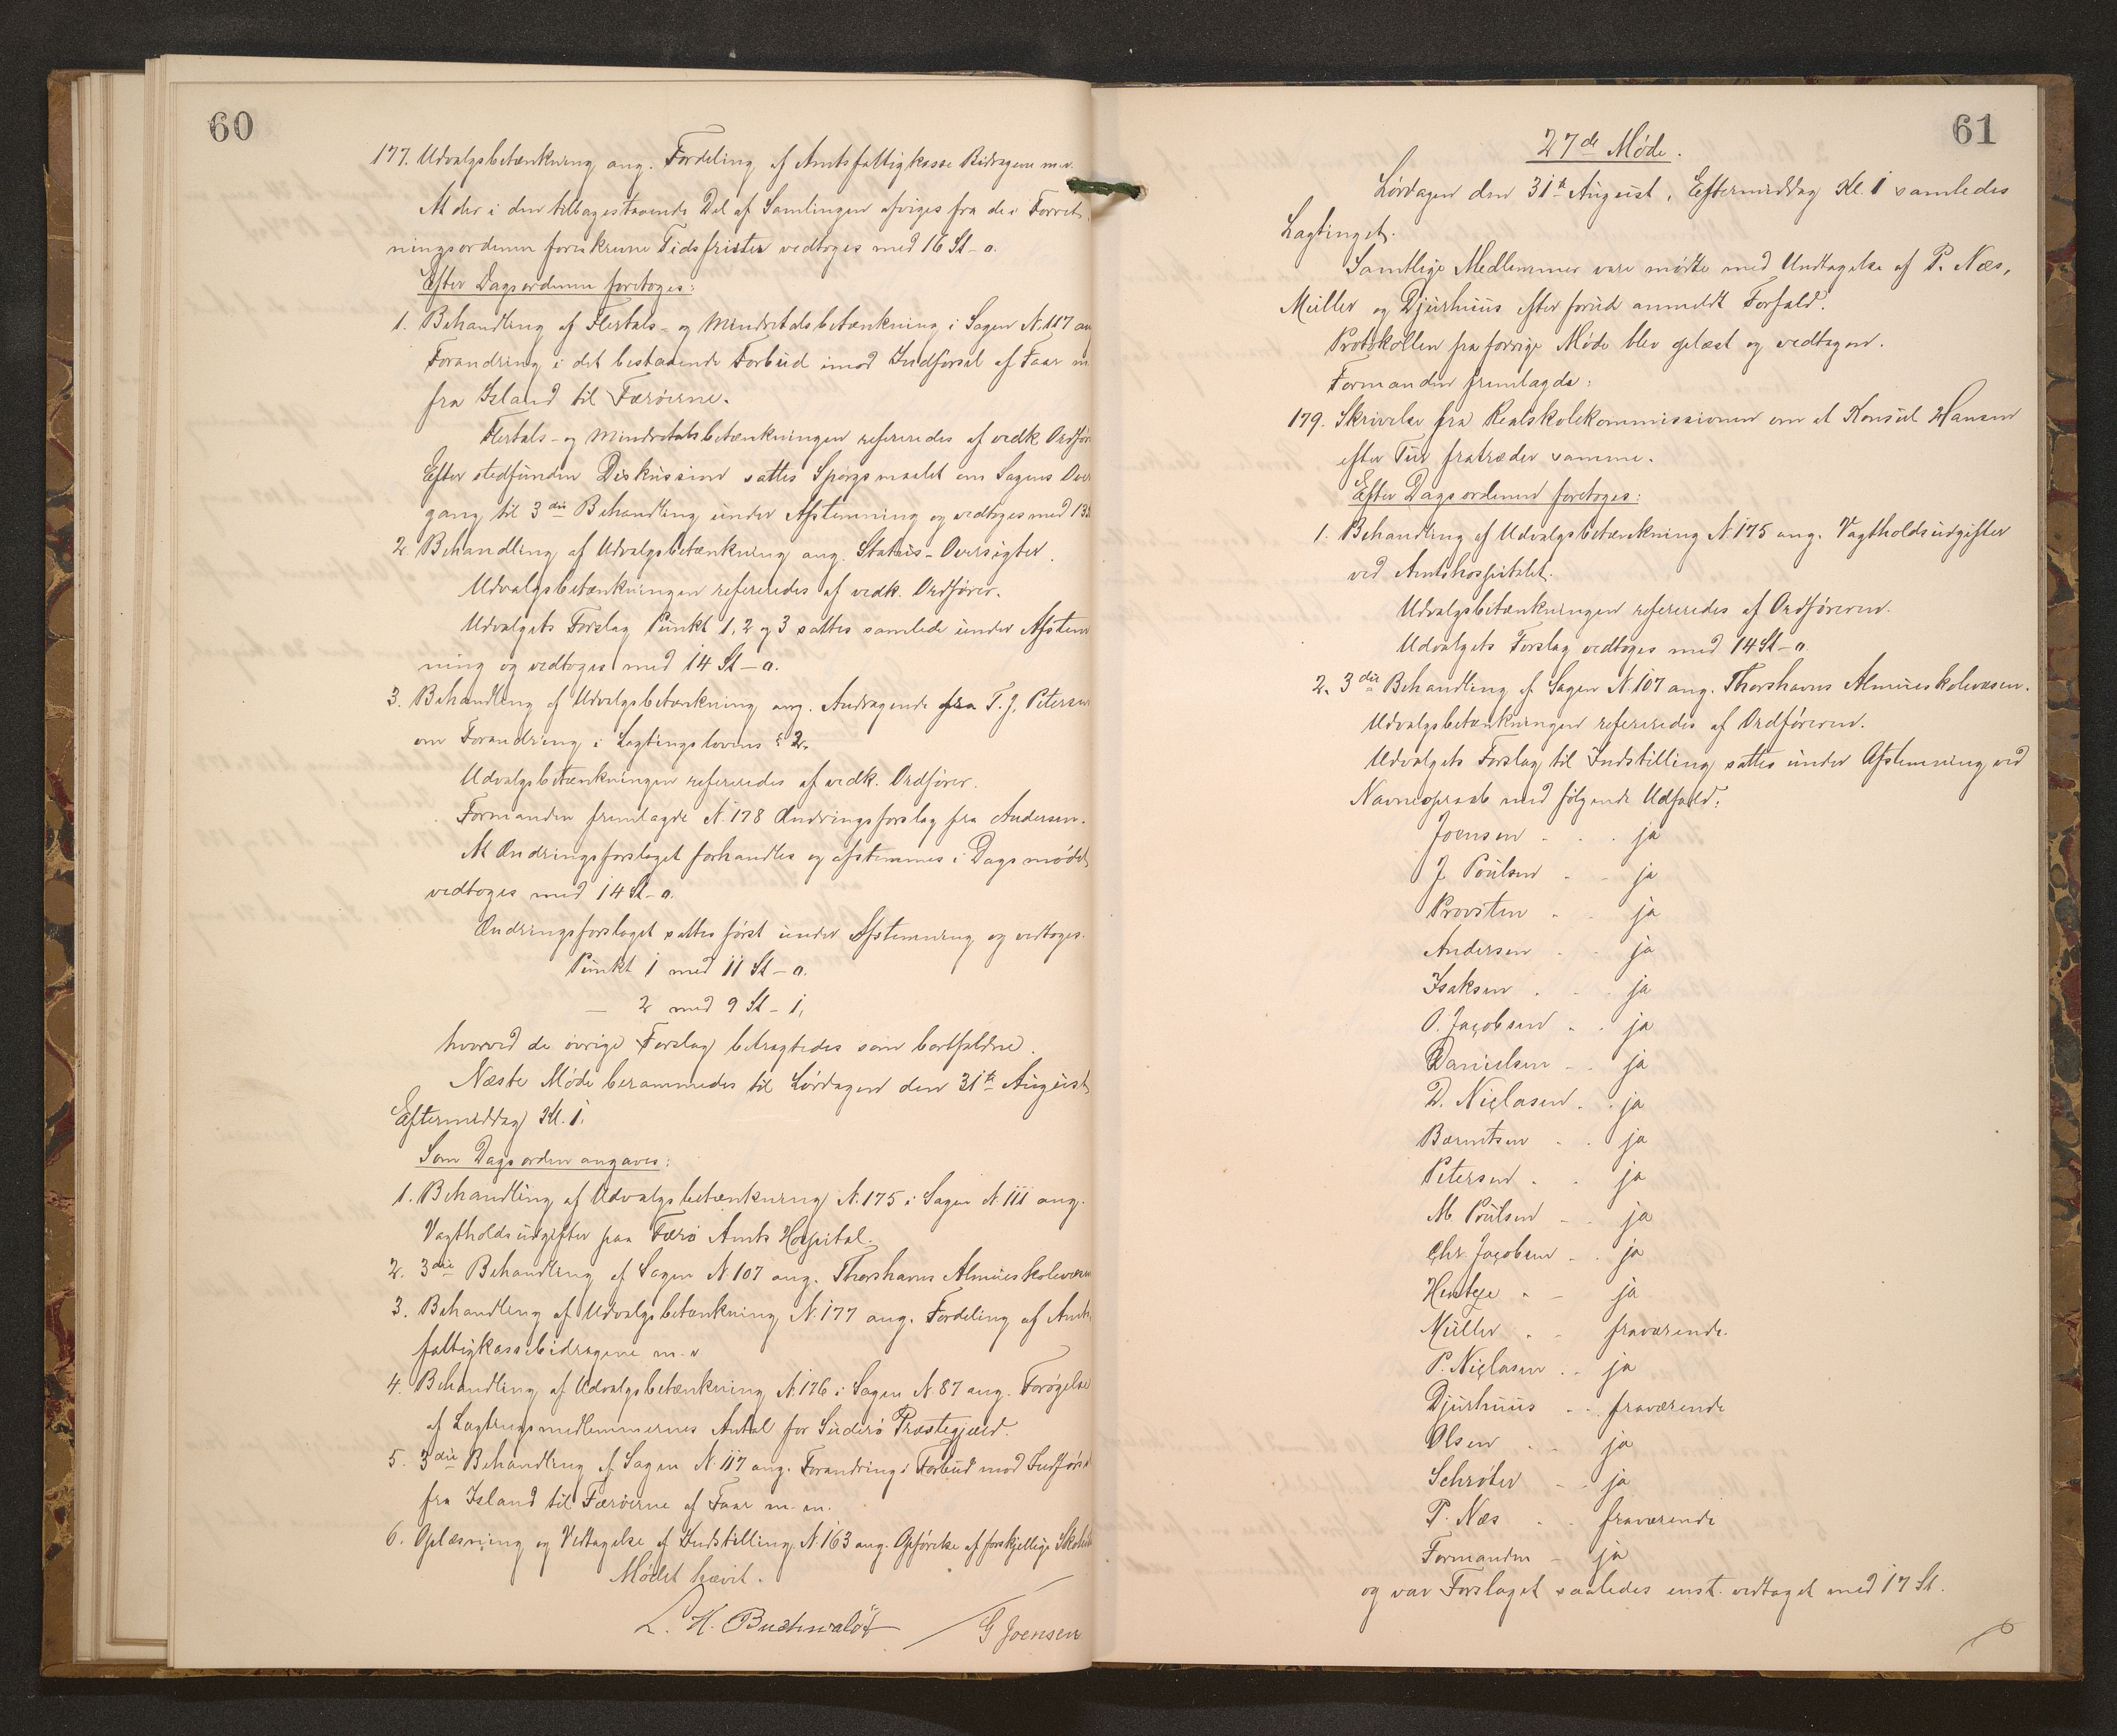 60
177. Udvalgsbetænkning ang. Fordeling af Amtsfattigkasse Bidragene m.v.
At der i den tilbagestaaende Del af Samlingen afviges fra de i Forret-
ningsordenen foreskrevne Tidsfrister vedtoges med 16 St - o.
Efter Dagsordenen foretoges:
1. Behandling af Flertals- og Mindretalsbetænkning i Sagen N. 117 an
Forandring i det bestaaende Forbud imod Indførsel af Faar m
fra Island til Færøerne.
Flertals- og Mindretalsbetænkningen refereredes af vedk. Ordfør
Efter stedfunden Diskussion sattes Spørgsmaalet om Sagens Over
gang til 3die Behandling under Afstemning og vedtoges med 13
2. Behandling af Udvalgsbetænkning ang. Status-Oversigter.
Udvalgsbetænkningen refereredes af vedk. Ordfører.
Udvalgets Forslag Punkt 1, 2 og 3 sattes samlede under Afstem
ning og vedtoges med 14 St - o.
3. Behandling af Udvalgsbetænkning ang. Andragende fra T. J. Petersen
om Forandring i Lagtingslovens § 2.
Udvalgsbetænkningen refereredes af vedk. Ordfører.
Formanden fremlagde N. 178 Ændringsforslag fra Andersen.
At Ændringsforslaget forhandles og afstemmes i Dagsmødet
vedtoges med 14 St - o.
Ændringsforslaget sattes først under Afstemning og vedtoges.
Punkt 1 med 11 St - o.
— 2 med 9 St - 1,
hvorved de øvrige Forslag betragtedes som bortfaldne.
Næste Møde berammedes til Lørdagen den 31te August
Eftermiddag Kl. 1.
Som Dagsorden angaves:
1. Behandling af Udvalgsbetænkning N. 175 i Sagen N. 111 ang.
Vagtholdsudgifter paa Færø Amts Hospital.
2. 3die Behandling af Sagen N 107 ang. Thorshavns Almueskolevæsen
3. Behandling af Udvalgsbetænkning N. 177 ang. Fordeling af Amts
fattigkassebidragene m. v
4. Behandling af Udvalgsbetænkning N. 176 i Sagen N. 87 ang. Forøgelse
af Lagtingsmedlemmernes Antal for Suderø Præstegjæld.
5. 3die Behandling af Sagen N. 117 ang. Forandring i Forbud mod Indførs
fra Island til Færøerne af Faar m. m.
6. Oplæsning og Vedtagelse af Indstilling N. 163 ang. Opførelse af forskjellige Skole
Mødet hævet.
L. H. Buchwaldt / G Joensen
61
27de Møde.
Lørdagen den 31te August, Eftermiddag Kl. 1 samledes
Lagtinget.
Samtlige Medlemmer vare mødte med Undtagelse af P. Næs,
Müller og Djurhuus efter forud anmeldt Forfald.
Protokollen fra forrige Møde blev oplæst og vedtagen.
Formanden fremlagde:
179. Skrivelse fra Realskolekommissionen om at Konsul Hansen
efter Tur fratræder samme.
Efter Dagsordenen foretoges:
1. Behandling af Udvalgsbetænkning N. 175 ang. Vagtholdsudgifter
ved Amtshospitalet.
Udvalgsbetænkningen refereredes af Ordføreren.
Udvalgets Forslag vedtoges med 14 St - o.
2. 3die Behandling af Sagen N. 107 ang. Thorshavns Almueskolevæsen.
Udvalgsbetænkningen refereredes af Ordføreren.
Udvalgets Forslag til Indstilling sattes under Afstemning ved
Navneopraab med følgende Udfald:
Joensen . . . ja
J Poulsen . . ja
Provsten . . ja
Andersen . . ja
Isaksen . . . ja
O. Jacobsen . . ja
Danielsen . . ja
D. Niclasen . . ja
Bærentsen . . ja
Petersen . . ja
M. Poulsen . . ja
Chr. Jacobsen . . ja
Hentze . . ja
Müller . . fraværende.
P. Niclasen . . ja
Djurhuus . . fraværende
Olsen . . ja
Schrøter . . ja
P. Næs . . fraværende
Formanden - ja
og var Forslaget saaledes enst. vedtaget med 17 St.